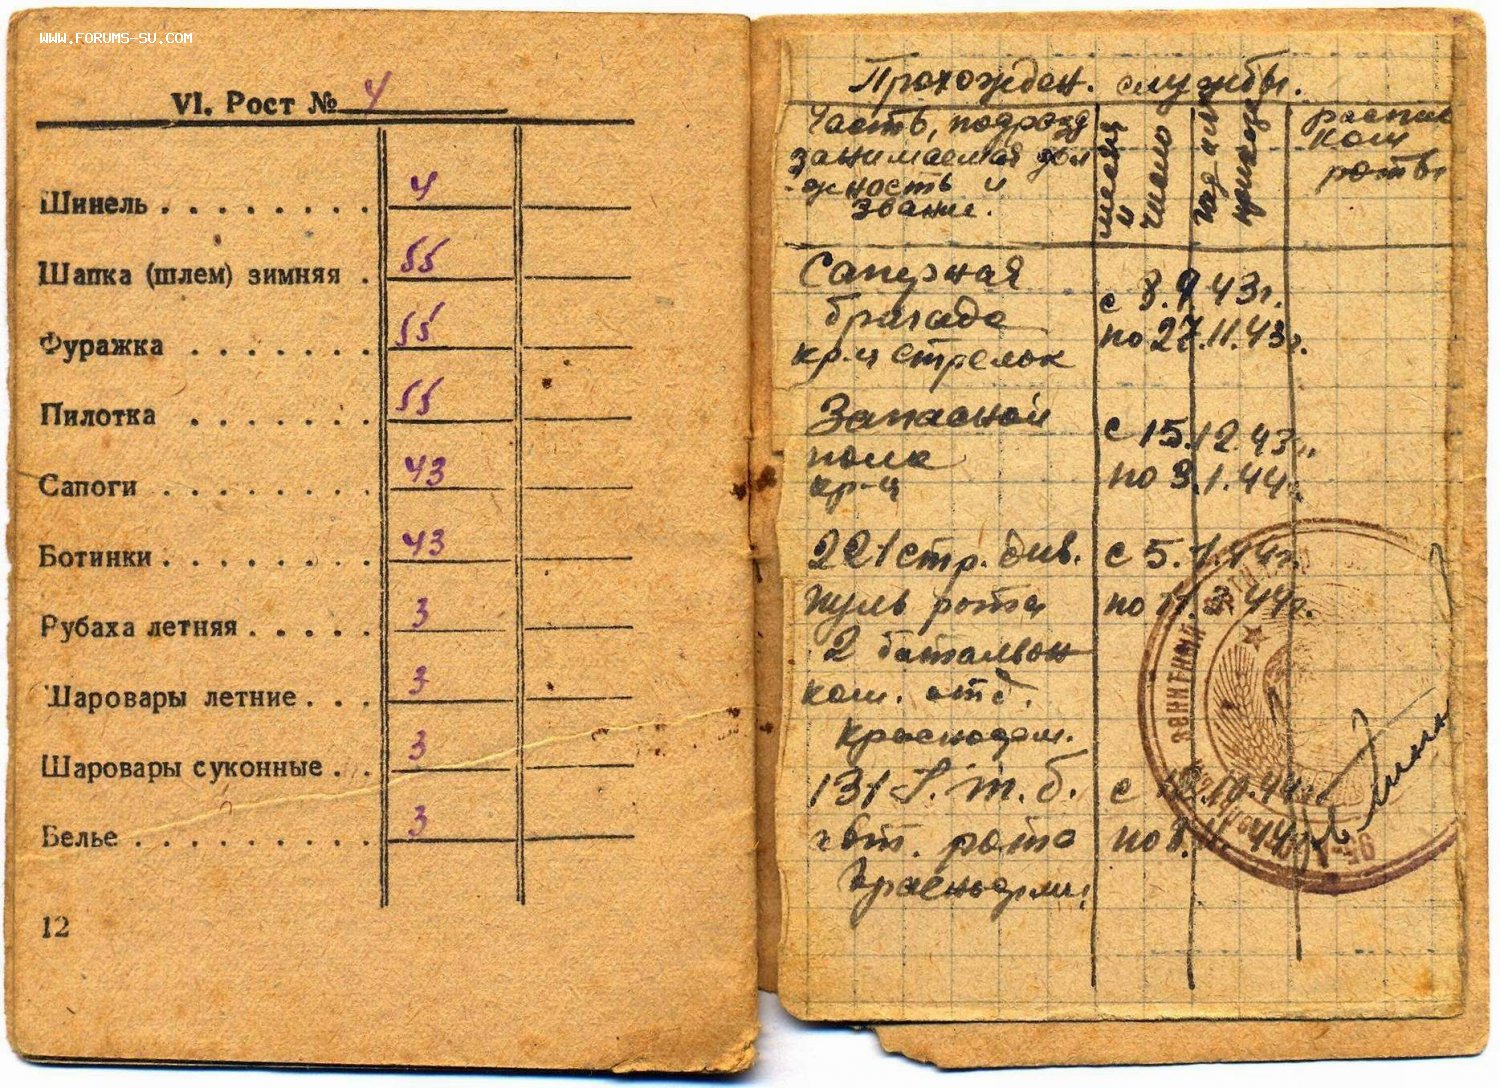 WWW.FORUMS-SU.COM
VI. Рост № 4
Шинель . . . . . . . . 4
Шапка (шлем) зимняя . 55
Фуражка . . . . . . . 55
Пилотка . . . . . . . 55
Сапоги . . . . . . . . 43
Ботинки . . . . . . . . 43
Рубаха летняя . . . . . 3
Шаровары летние . . . 3
Шаровары суконные . . 3
Белье . . . . . . . . . . 3
12
Прохожден. службы.
Часть, подразд
занимаемая дол
жность и
звание.
месяц
и
число
год и №
приказа
распис
ком
роты
Саперная
бригада
кр-ц стрелок
с 8.9 43г.
по 27.11.43г.
Запасной
полк
кр-ц
с 15.12.43г.
по 3.1.44г.
221 стр. див.
пуль рота
2 батальон
ком. отд.
красноарм.
с 5.1.44г.
по 44г.
131 т. б.
рота
Красноарм.
с 44г.
по 44г.
ЗЕНИТНЫЙ